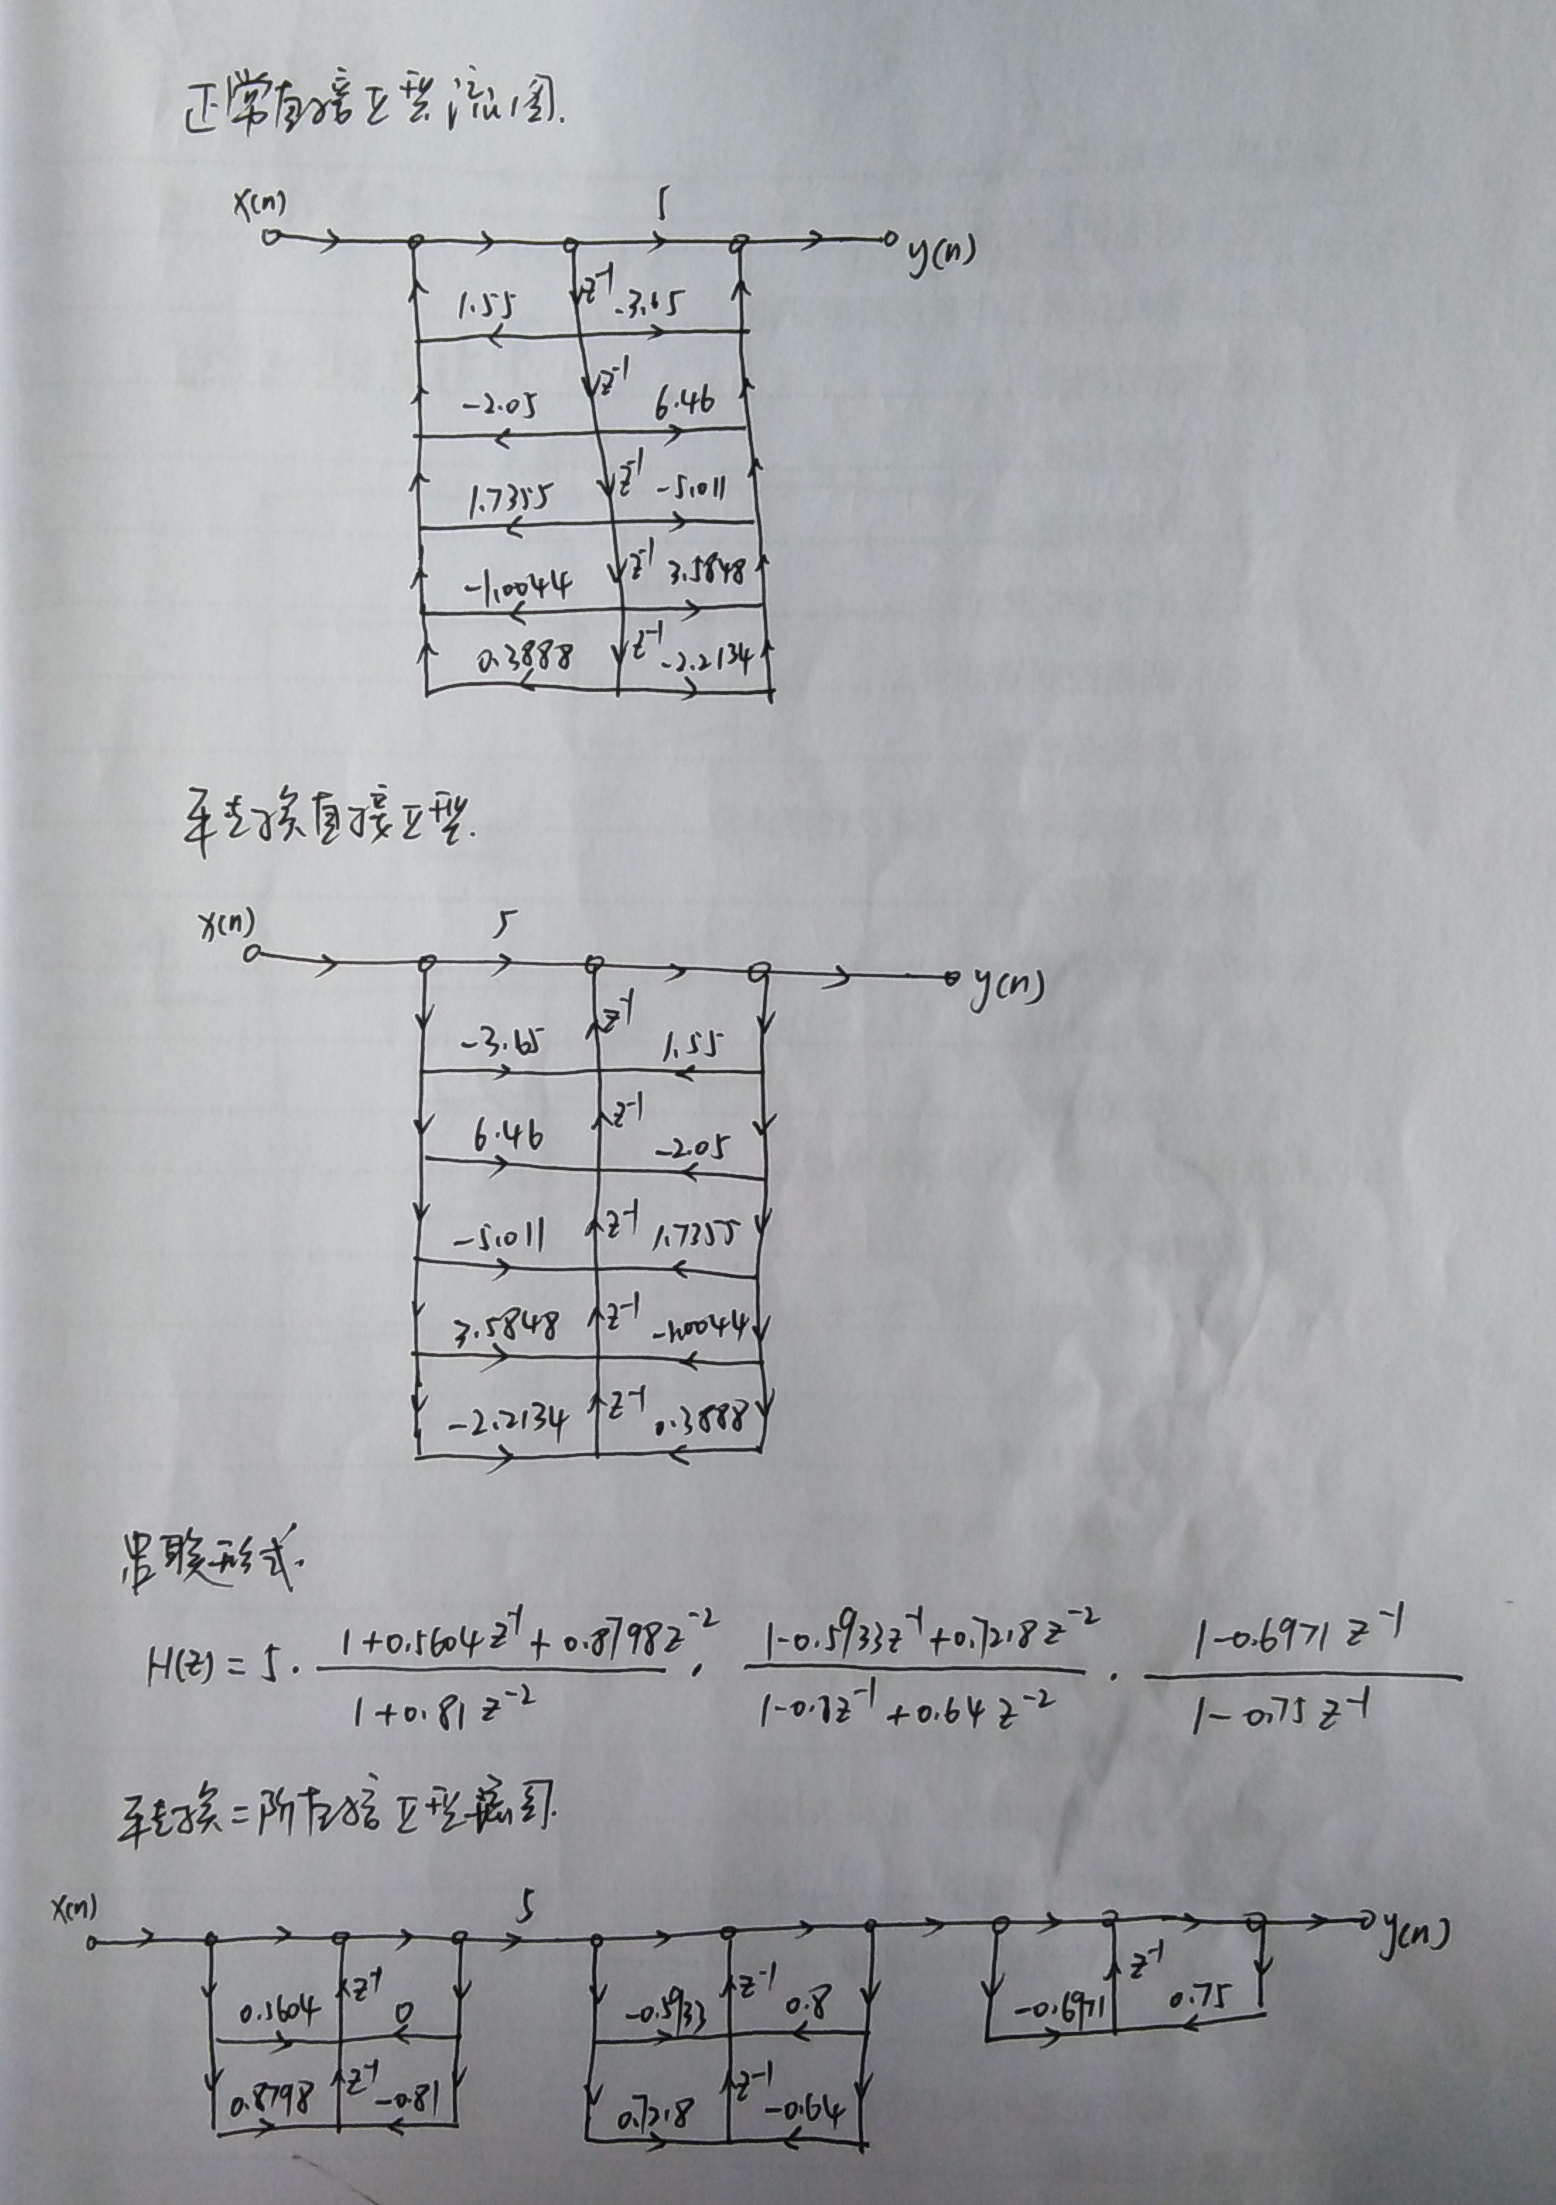 正常直接Ⅱ型流图.
x(n) 5 y(n)
1.55 z⁻¹ -3.65
z⁻¹
-2.05 6.46
1.7355 z⁻¹ -5.011
-1.0044 z⁻¹ 3.5848
0.3888 z⁻¹ -2.2134
转换直接Ⅱ型.
x(n) 5 y(n)
z⁻¹
-3.65 1.55
z⁻¹
6.46 -2.05
-5.011 z⁻¹ 1.7355
3.5848 z⁻¹ -1.0044
-2.2134 z⁻¹ 0.3888
串联形式.
H(z) = 5 · (1+0.5604z⁻¹+0.8798z⁻²)/(1+0.81z⁻²) · (1-0.5933z⁻¹+0.7218z⁻²)/(1-0.8z⁻¹+0.64z⁻²) · (1-0.6971z⁻¹)/(1-0.75z⁻¹)
转换二阶直接Ⅱ型流图.
x(n) 5 y(n)
0.5604 z⁻¹ 0 -0.5933 z⁻¹ 0.8 -0.6971 z⁻¹ 0.75
0.8798 z⁻¹ -0.81 0.7218 z⁻¹ -0.64